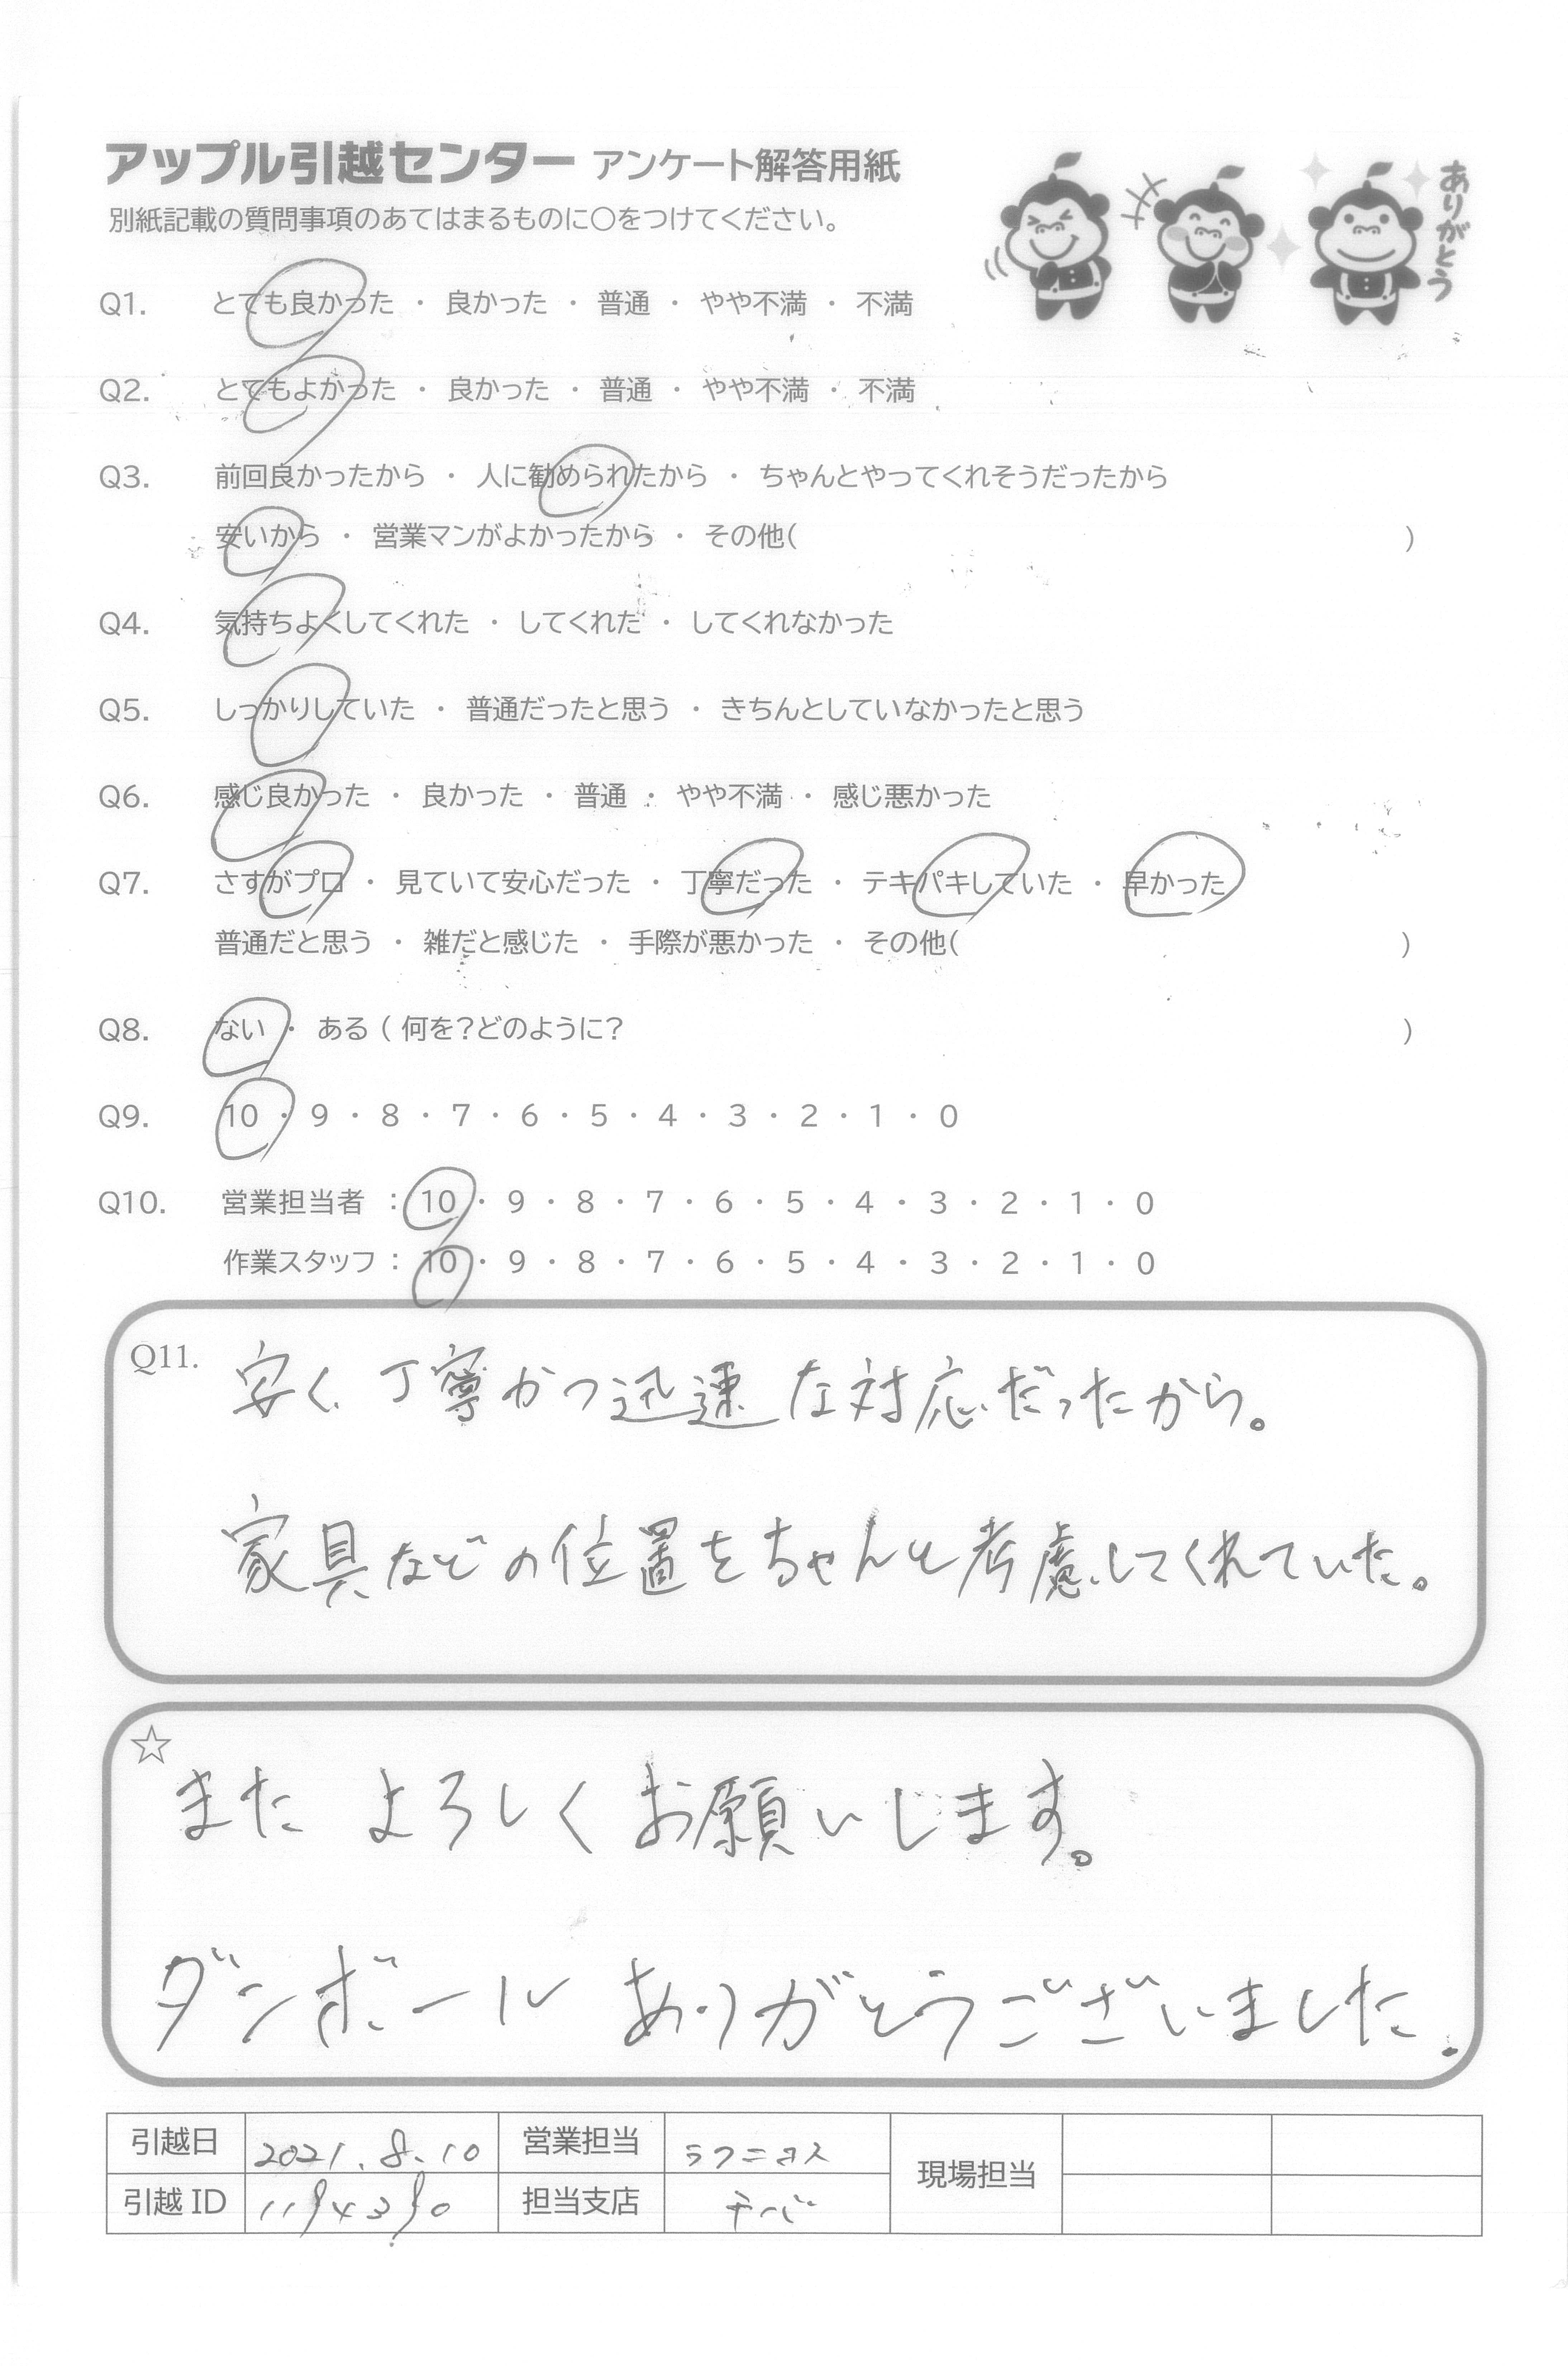 アップル引越センター アンケート解答用紙
別紙記載の質問事項のあてはまるものに○をつけてください。
ありがとう
Q1. とても良かった ・ 良かった ・ 普通 ・ やや不満 ・ 不満
Q2. とてもよかった ・ 良かった ・ 普通 ・ やや不満 ・ 不満
Q3. 前回良かったから ・ 人に勧められたから ・ ちゃんとやってくれそうだったから
安いから ・ 営業マンがよかったから ・ その他( )
Q4. 気持ちよくしてくれた ・ してくれた ・ してくれなかった
Q5. しっかりしていた ・ 普通だったと思う ・ きちんとしていなかったと思う
Q6. 感じ良かった ・ 良かった ・ 普通 ・ やや不満 ・ 感じ悪かった
Q7. さすがプロ ・ 見ていて安心だった ・ 丁寧だった ・ テキパキしていた ・ 早かった
普通だと思う ・ 雑だと感じた ・ 手際が悪かった ・ その他( )
Q8. ない ・ ある ( 何を?どのように? )
Q9. 10 ・ 9 ・ 8 ・ 7 ・ 6 ・ 5 ・ 4 ・ 3 ・ 2 ・ 1 ・ 0
Q10. 営業担当者 : 10 ・ 9 ・ 8 ・ 7 ・ 6 ・ 5 ・ 4 ・ 3 ・ 2 ・ 1 ・ 0
作業スタッフ : 10 ・ 9 ・ 8 ・ 7 ・ 6 ・ 5 ・ 4 ・ 3 ・ 2 ・ 1 ・ 0
Q11. 安く、丁寧かつ迅速な対応だったから。
家具などの位置をちゃんと考慮してくれていた。
☆
また よろしく お願いします。
ダンボール ありがとうございました.
引越日 2021.8.10 営業担当 現場担当
引越 ID 担当支店 チバ